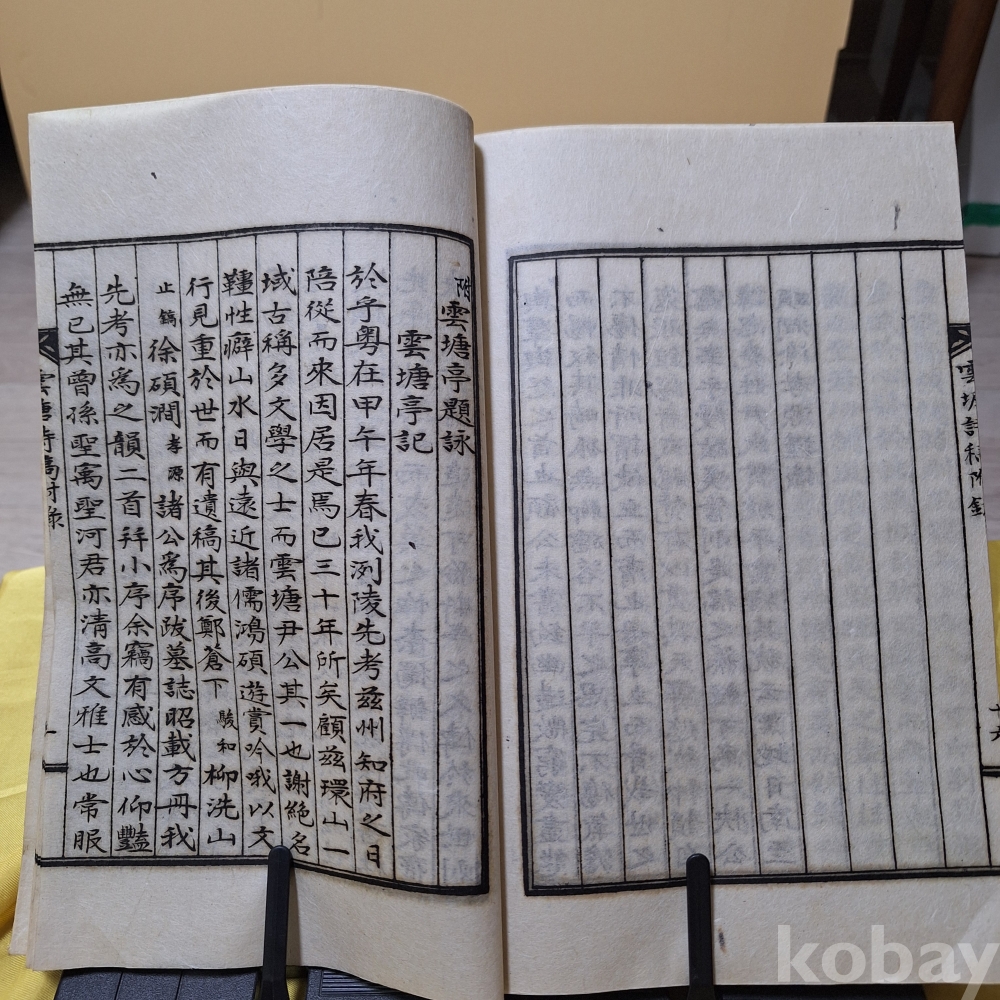 附雲塘亭題詠
雲塘亭記
於乎粤在甲午年春我洌陵先考茲州知府之日
陪從而來因居是焉已三十年所矣顧茲環山一
域古稱多文學之士而雲塘尹公其一也謝絶名
韁性癖山水日與遠近諸儒鴻碩遊賞吟哦以文
行見重於世而有遺稿其後鄭蒼下駿和柳洗山
止鎬徐碩澗孝源諸公爲序跋墓誌昭載方冊我
先考亦爲之韻二首拜小序余竊有感於心仰豔
無已其曾孫聖寓聖河君亦清高文雅士也常服
雲塘詩稿附錄
雲塘詩稿附錄
kobay